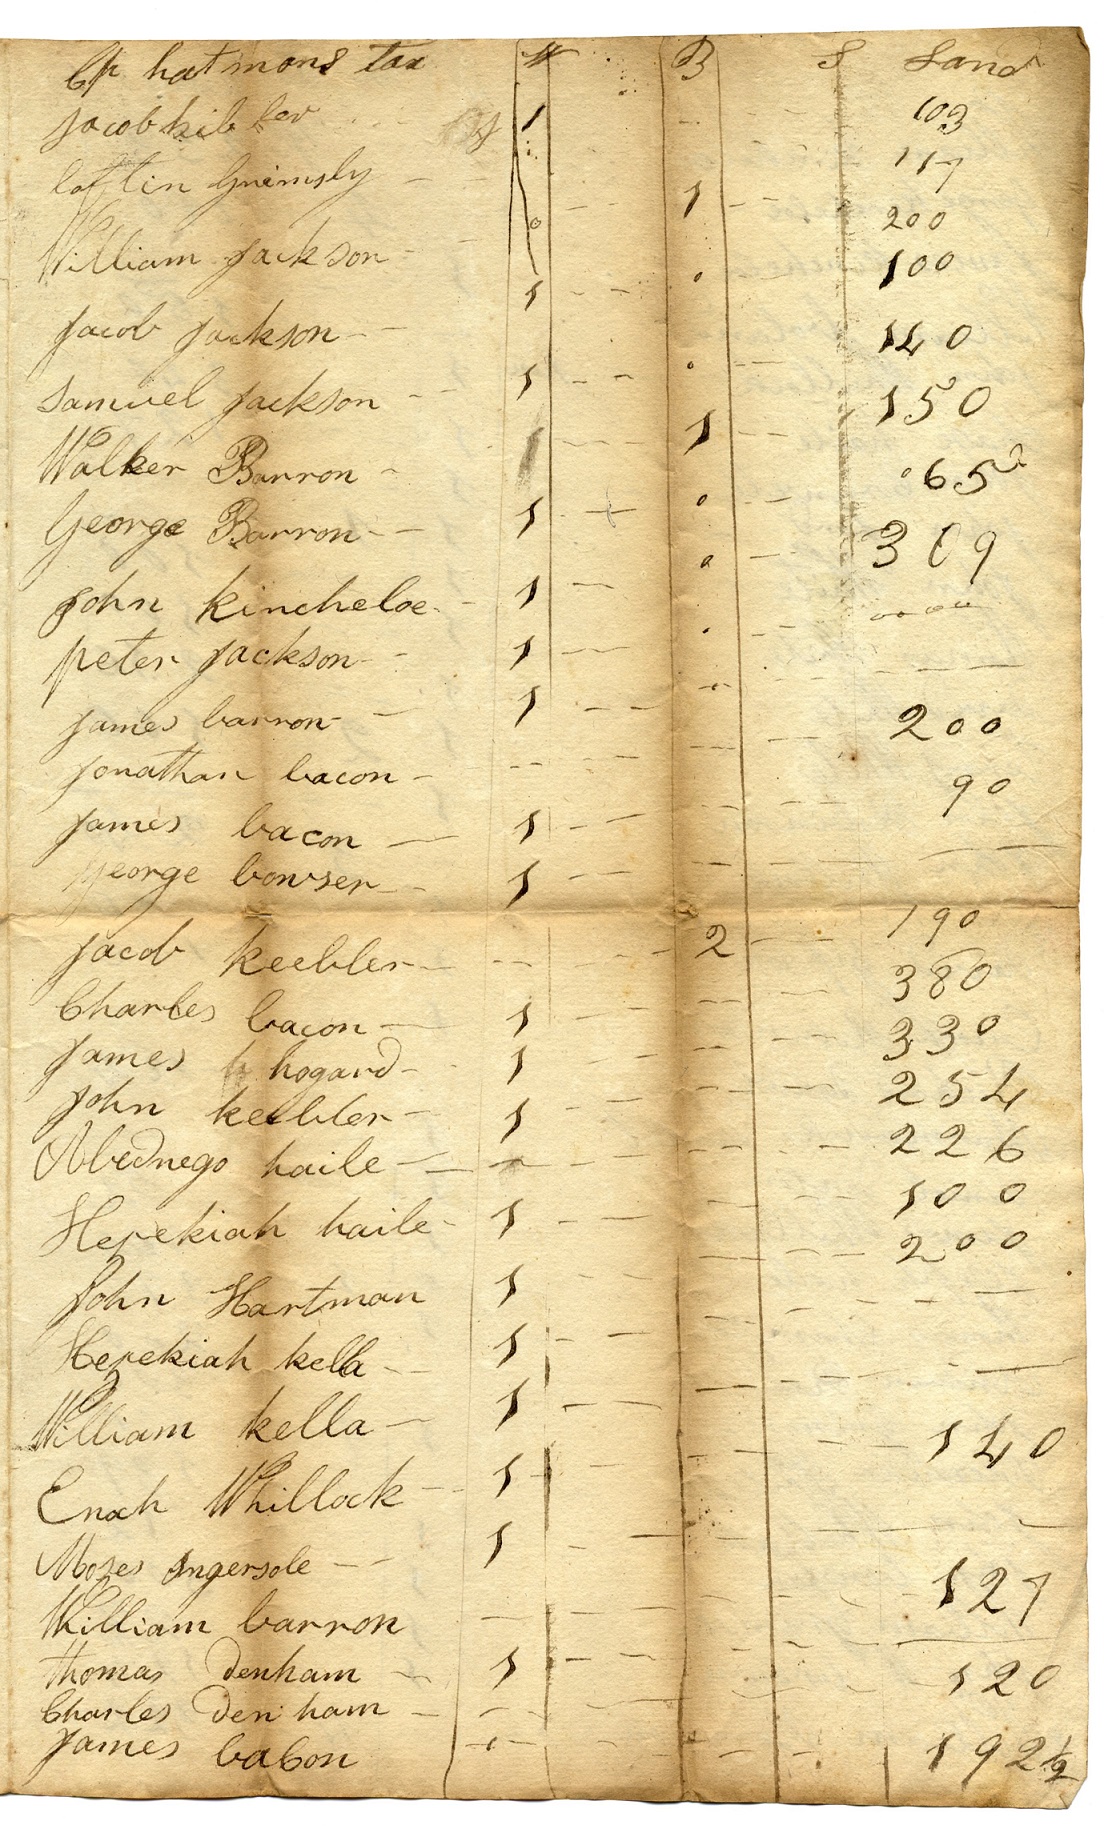 Cp hatmons tax W B S Land
Jacob kibler 1 103
loftin Grimsly 1 117
200
William Jackson 100
Jacob Jackson 1 140
Samuel Jackson 1 150
Walker Barron 1 1 65
George Barron 1 0 309
John kincheloe 1 0
peter Jackson 1
James barron 1 200
Jonathan bacon 90
James bacon 1
George bowser 1
Jacob keebler 2 190
Charles bacon 1 380
James h hogard 1 330
John keebler 1 254
Abednego haile 226
Hezekiah haile 1 100
200
John Hartman 1
Hezekiah kella 1
William kella 1 140
Enoch Whillock 1
Mozes Ingersole 1 127
William barron
Thomas Denham 1 120
Charles Denham
James bacon 192 1/2